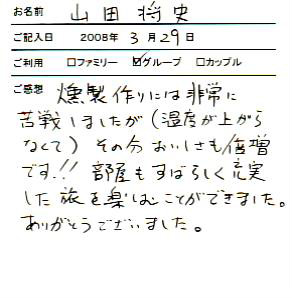 お名前 山田将史
ご記入日 2008年 3月29日
ご利用 □ファミリー ☑グループ □カップル
ご感想 燻製作りには非常に
苦戦しましたが(温度が上がら
なくて) その分おいしさも倍増
です!! 部屋もすばらしく充実
した旅を楽しむことができました。
ありがとうございました。